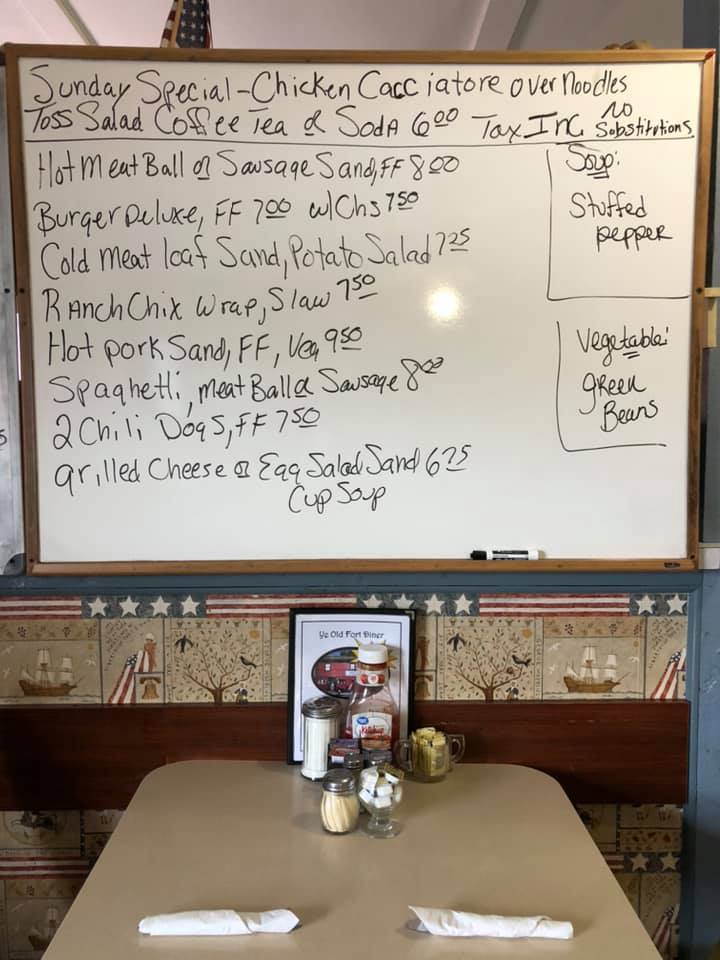 Sunday Special - Chicken Cacciatore over Noodles
Toss Salad Coffee Tea or Soda 6 00 Tax Inc no Substitutions
Hot Meat Ball or Sausage Sand, FF 8 00
Burger Deluxe, FF 7 00 w/Chs 7 50
Cold meat loaf Sand, Potato Salad 7 25
Ranch Chix Wrap, Slaw 7 50
Hot pork Sand, FF, Veg 9 50
Spaghetti, meat Ball or Sausage 8 00
2 Chili Dogs, FF 7 50
grilled Cheese or Egg Salad Sand 6 75
Cup Soup
Soup:
Stuffed
pepper
Vegetable:
green
Beans
Ye Old Fort Diner
Ketchup